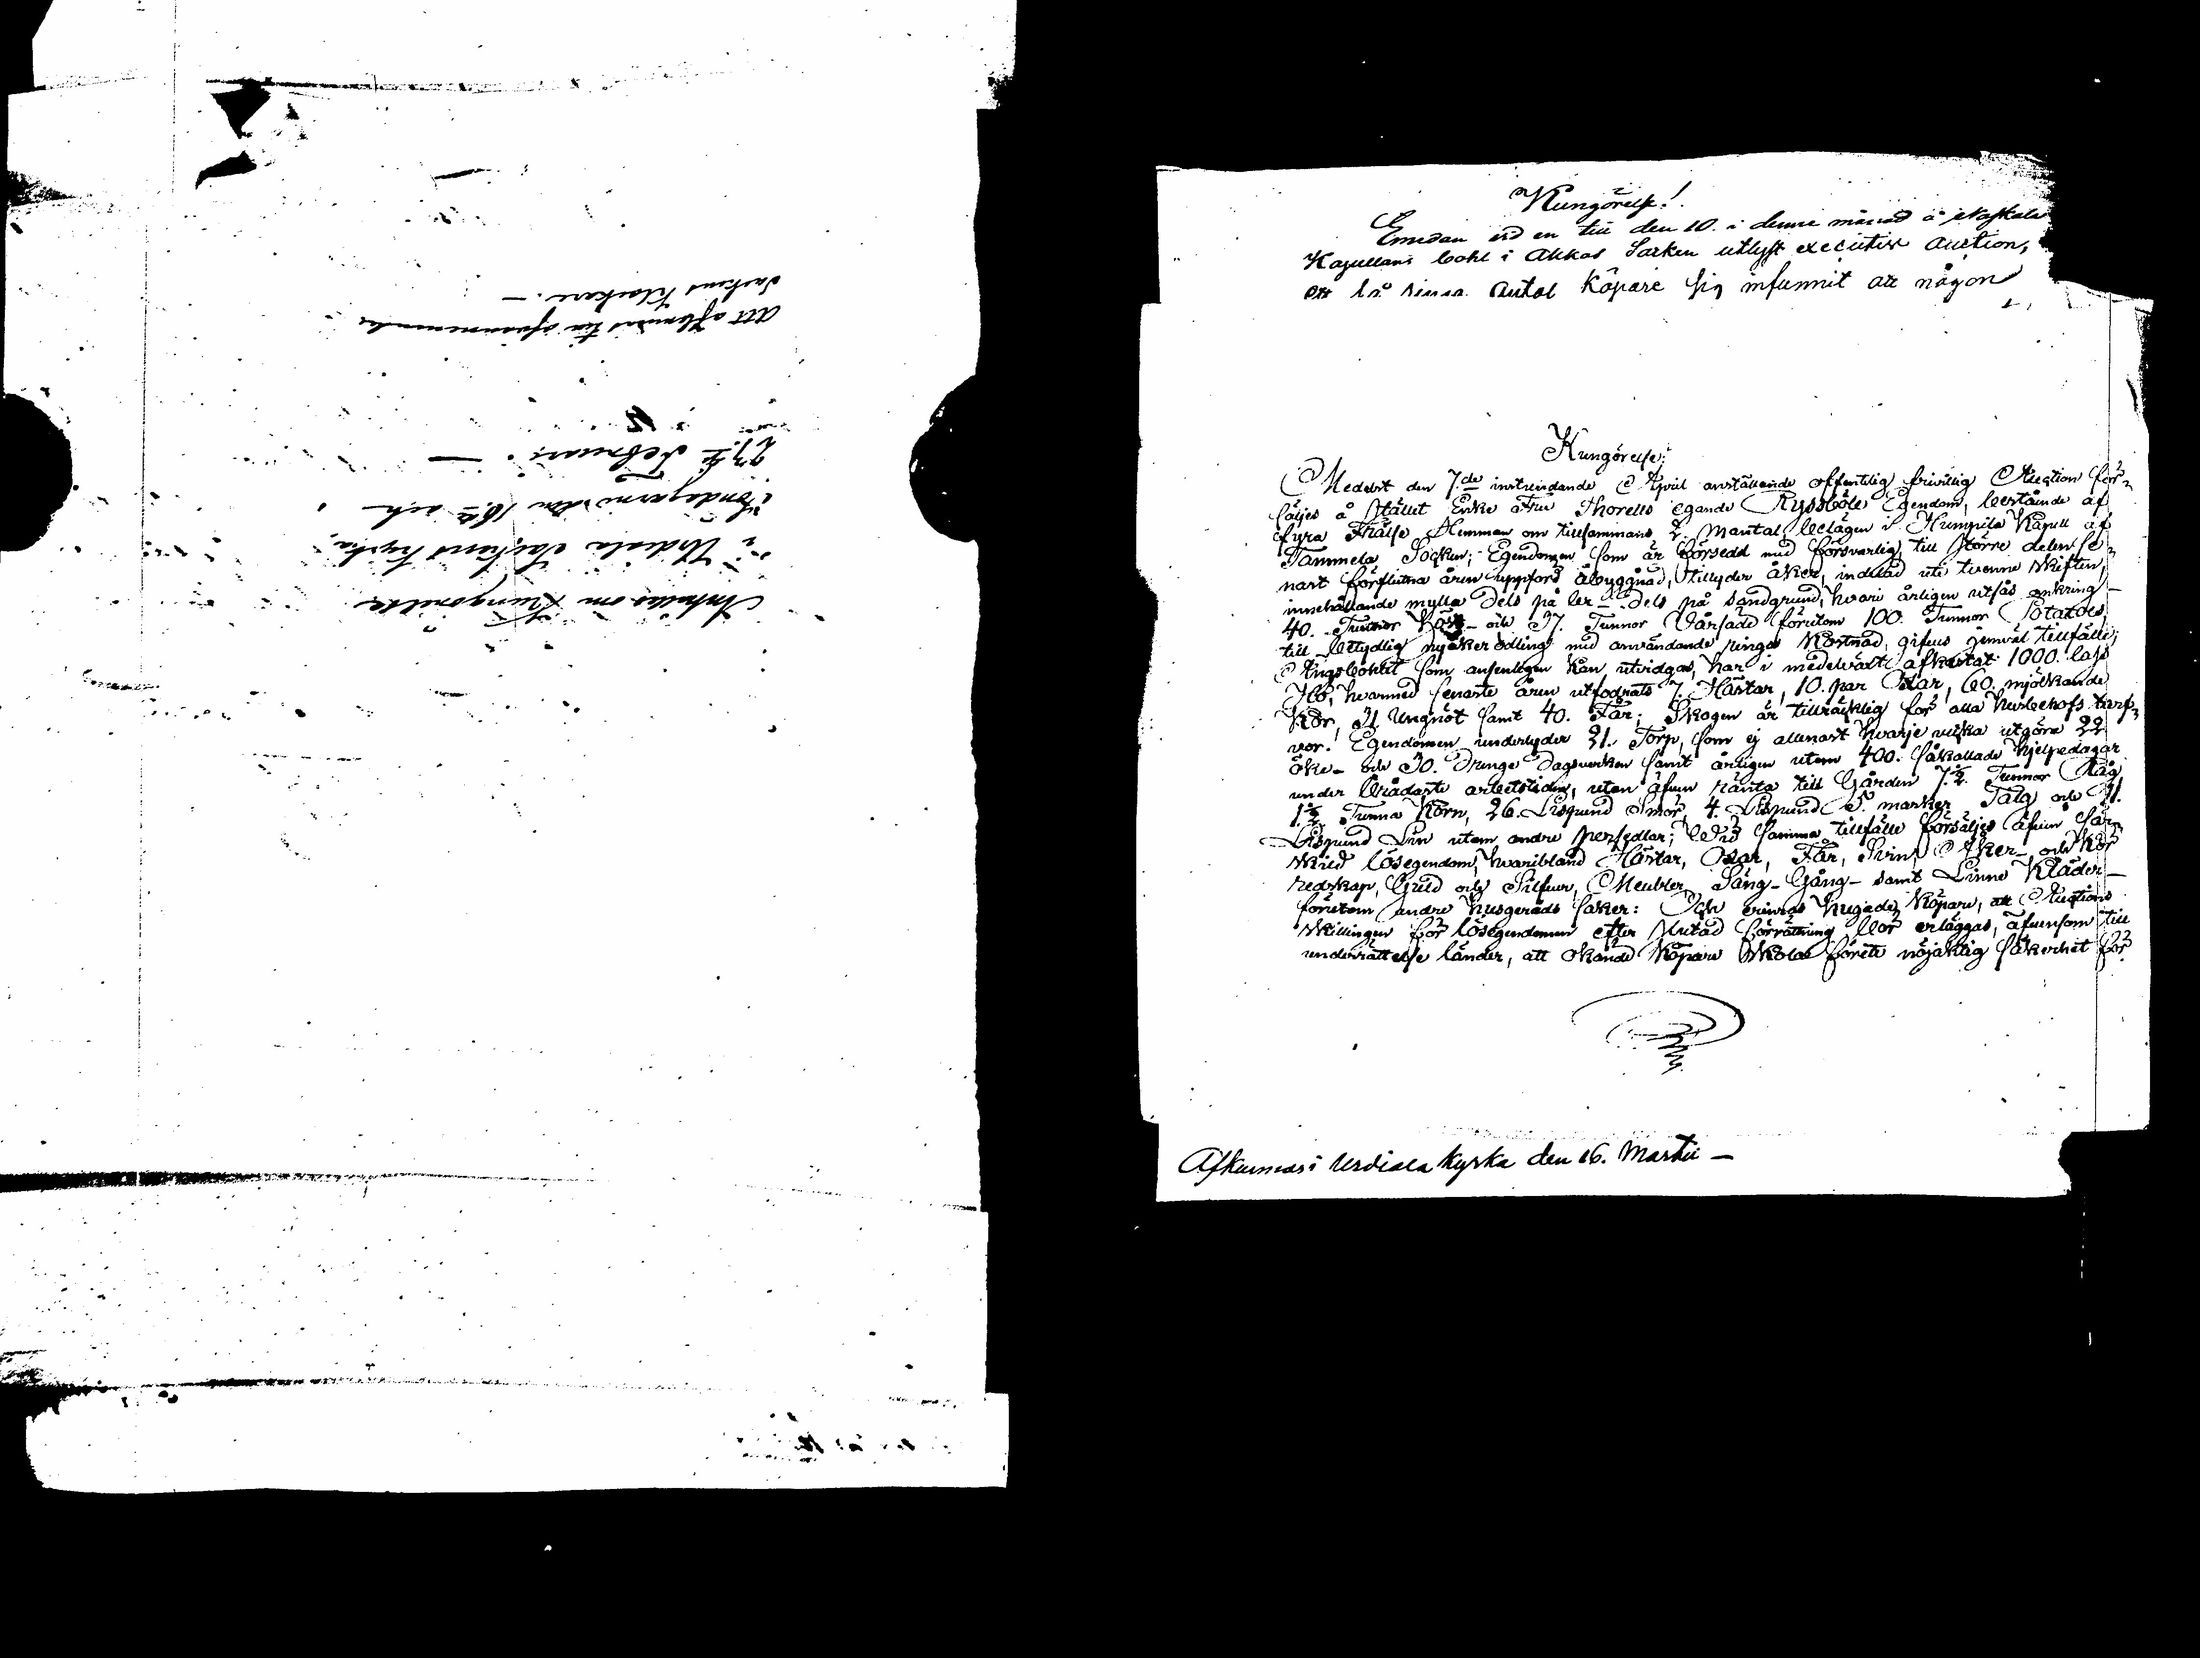 Anhålles om Kungörelse
i Urdiala Sockens kyrka
Söndagarne den 16de och
23de Februari. —
Att aflemnas till ofvannemnde
Sockens Klockare. —
Kungörelse!
Emedan vid en till den 10. i denne månad å
Kapellans bohl i Akkas Socken utlyst executiv auction,
ett så ringa antal köpare sig infunnit att någon
Kungörelse:
Medelst den 7.de instundande April anställande offentlig frivillig Auction för-
säljes å stället Enke Fru Thorells egande Ryssböle Egendom, bestående af
fyra Frälse Hemman om tillsammans 2 mantal, belägen i Humpila Kapell af
Tammela Socken; Egendomen som är försedd med försvarlig till större delen se-
nast förflutna åren uppförd åbyggnad, tillyder åker, indelad uti tvenne skiften,
innehållande mylla dels på ler- dels på sandgrund, hvari årligen utsås omkring
40. Tunnor Höst- och 37. Tunnor Vårsäde förutom 100. Tunnor Potatoes,
till betydlig nyåkerodling med användande ringa kostnad, gifves jemväl tillfälle;
Ängsbohlet som ansenligen kan utvidgas, har i medelväxt afkastat 1000. lass
Hö, hvarmed senaste åren utfodrats 7. Hästar, 10. par Oxar, 60. mjölkande
Kor, 31 Ungnöt samt 40. Får; Skogen är tillräcklig för alla husbehofs turf-
vor. Egendomen underlyder 21. Torp, som ej allenast hvarje vecka utgöra 22
öke- och 30. dränge dagsverken samt årligen utom 400. såkallade hjelpedagar
under brådaste arbetstiden, utan äfven ränta till Gården 7.½ Tunnor Råg,
1.½ Tunna Korn, 26. Lispund Smör, 4. Lispund 5. marker Talg och 11.
Lispund Lin utom andre persedlar; Vid samma tillfälle försäljes äfven sär-
skild lösegendom, hvaribland Hästar, Oxar, Får, Svin, Åker- och Kör
redskap, Guld och Silfver, Meubler, Säng- Gång- samt Linne Kläder
förutom andre husgeråds saker: Och erinras hugade Köpare, att Auctions
skillingen för lösegendomen efter slutad förrättning bör erläggas, äfvensom till
underrättelse länder, att okände Köpare skola förete nöjaktig säkerhet för
Afkunnas i Urdiala kyrka den 16. Martii —